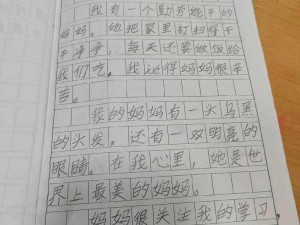 我有一个勤劳能干的
妈妈。她把家里打扫得干
干净净，每天还要做饭给
我们吃。我觉得妈妈很辛
苦。
我的妈妈有一头乌黑
的头发。还有一双明亮的
眼睛。在我心里，她是世
界上最美的妈妈。
妈妈很关注我的学习，